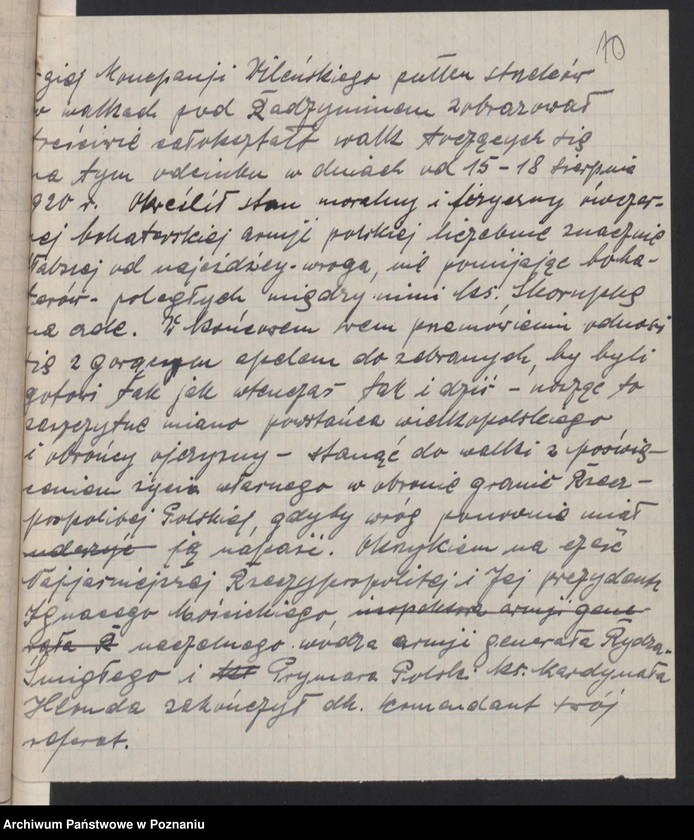 10
-giej Kompanji Wileńskiego pułku strzelców
w walkach pod Radzyminem zobrazował
treściwie całokształt walk toczących się
na tym odcinku w dniach od 15-18 sierpnia
920 r. Określił stan moralny i fizyczny ówczes-
nej bohaterskiej armji polskiej liczebnie znacznie
słabszej od najeźdźcy-wroga, nie pomijając boha-
terów- poległych między nimi ks. Skorupkę
na ade. W końcowem swem przemówieniu odnosi
się z gorącym apelem do zebranych, by byli
gotowi tak jak wtenczas tak i dziś - nosząc to
zaszczytne miano powstańca wielkopolskiego
i obrońcy ojczyzny - stanąć do walki z poświę-
ceniem życia własnego w obronie granic Rzecz-
pospolitej Polskiej, gdyby wróg ponownie miał
uderzyć ją napaść. Okrzykiem na cześć
Najjaśniejszej Rzeczypospolitej i Jej prezydenta
Ignacego Mościckiego, inspektora armji gene-
rała R naczelnego wodza armji generała Rydza-
Śmigłego i Prymasa Polski ks. kardynała
Hlonda zakończył dh. komendant swój
referat.
Archiwum Państwowe w Poznaniu